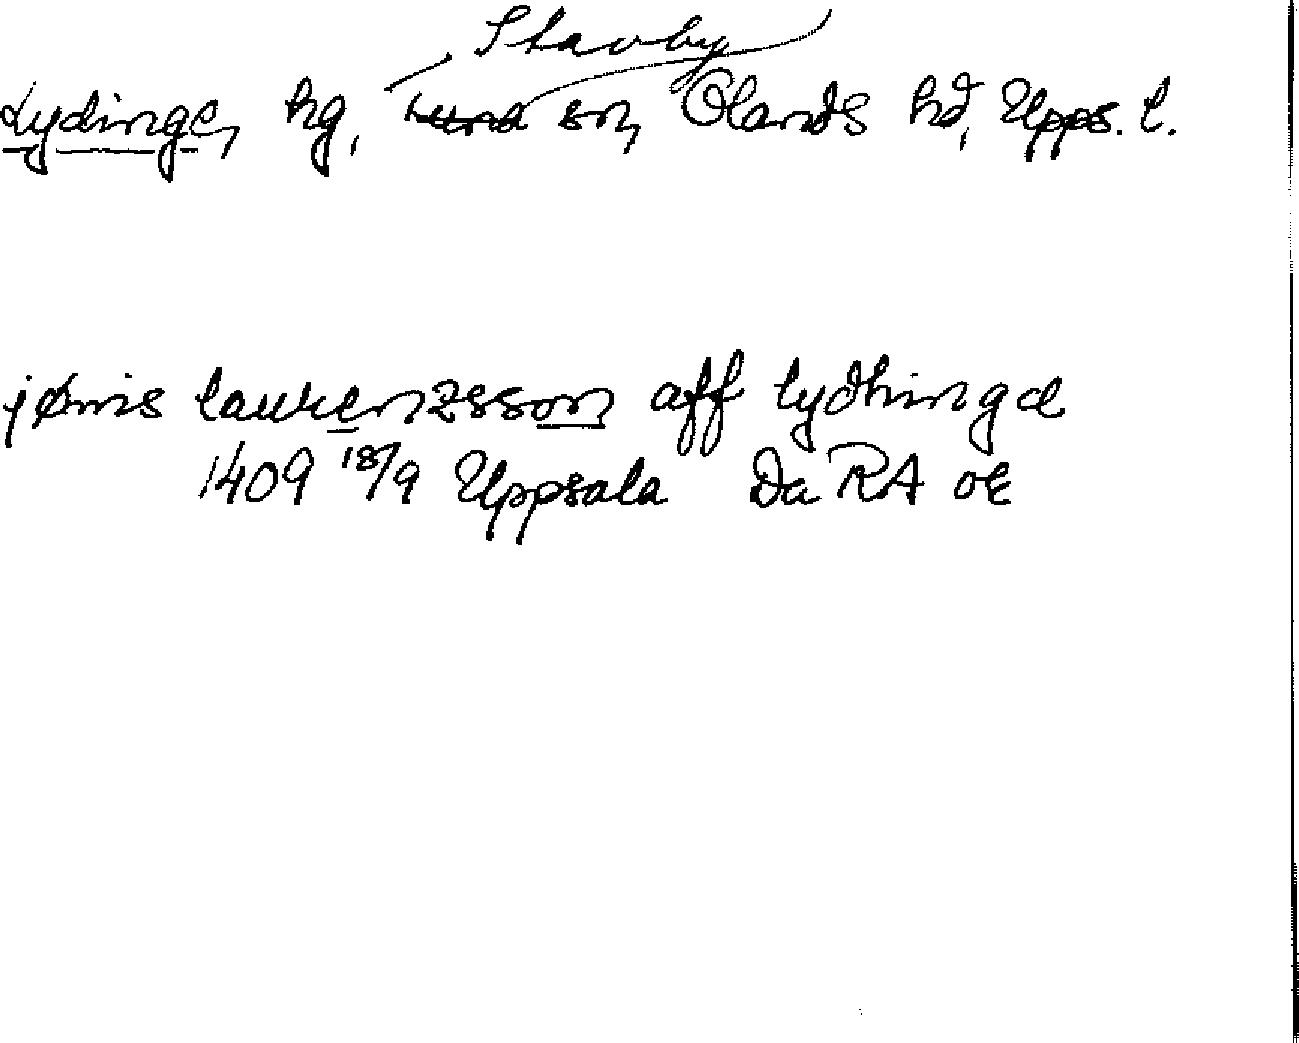 Stavby
Lydinge, hg, Tuna sn, Olands hd, Upps. l.
jønis laurenzsson aff lydhingæ
1409 18/9 Uppsala Da RA oε